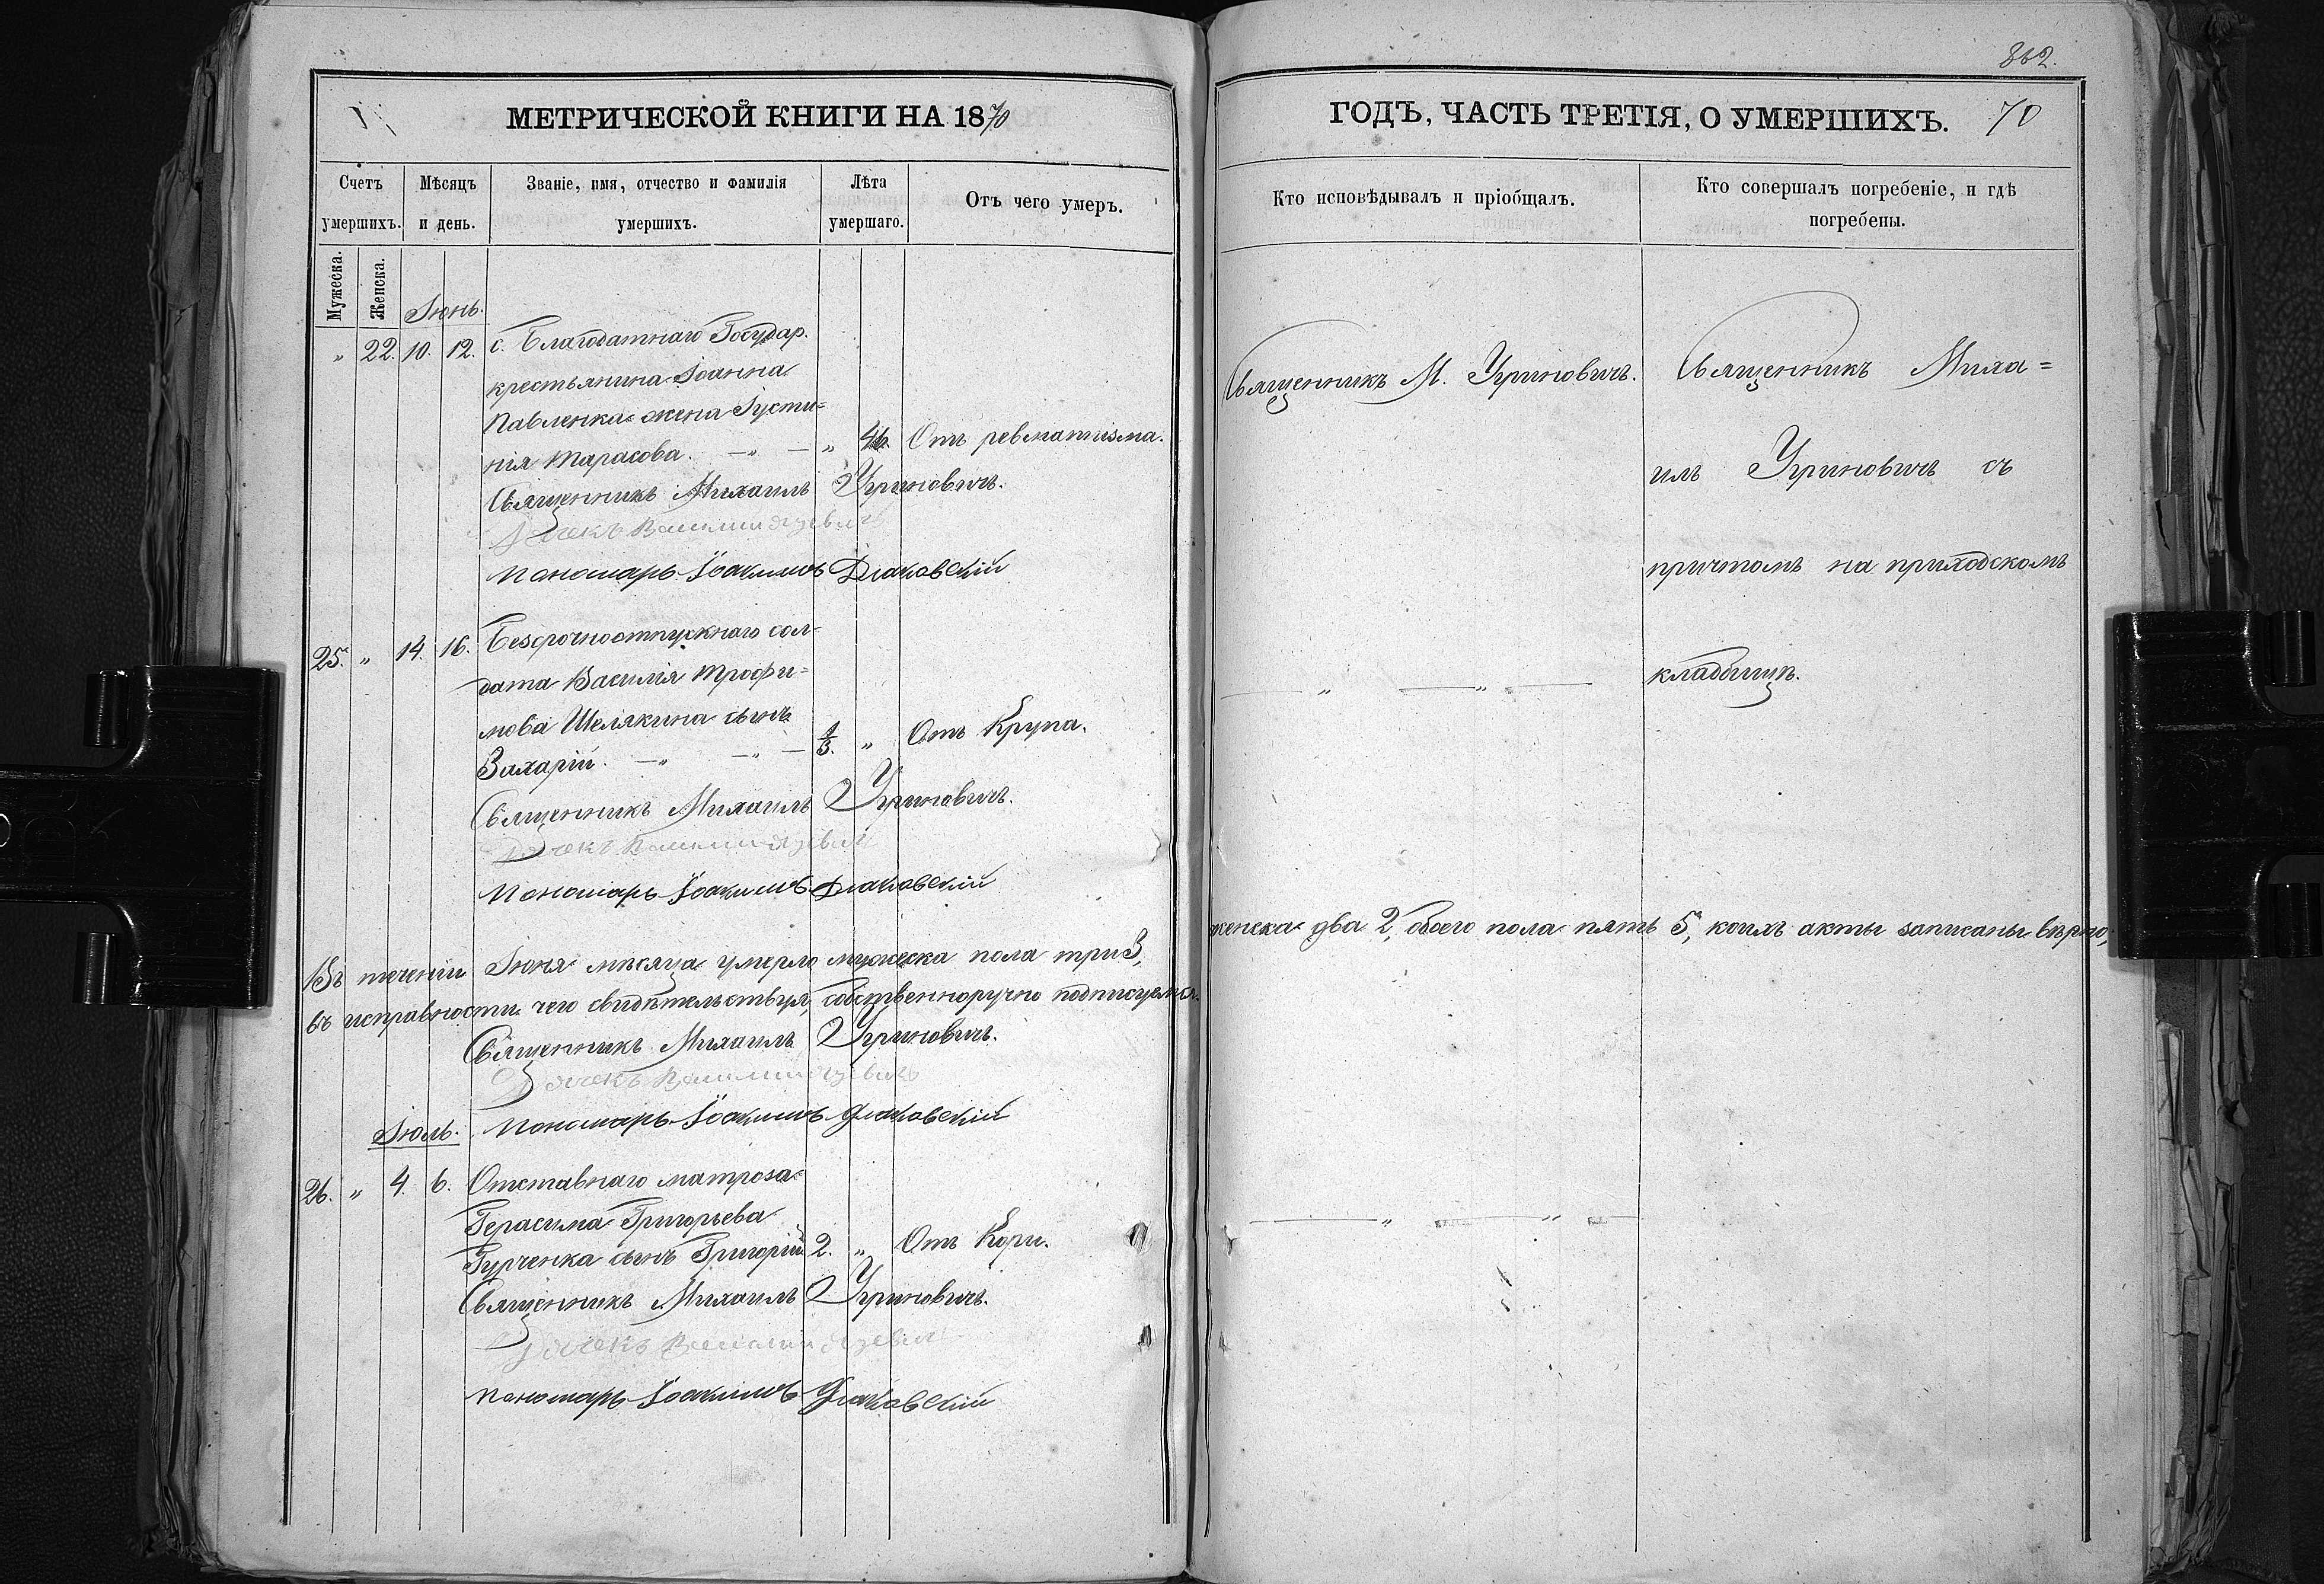 862.
МЕТРИЧЕСКОЙ КНИГИ НА 1870
Счетъ умершихъ.
Мѣсяцъ и день.
Званіе, имя, отчество и фамилія умершихъ.
Лѣта умершаго.
Отъ чего умеръ.
Мужеска.
Женска.
Іюнь.
„ 22. 10. 12. с. Благодатнаго Государ.
крестьянина Іоанна
Павленка жена Іусти=
нія Тарасова. — „ — „ 46. Отъ ревматизма.
Священникъ Михаилъ Угриновичъ.
Дячекъ
Пономарь Іоакимъ Дьаковскій
25. „ 14. 16. Безсрочноотпускнаго сол-
дата Василія Трофи=
мова Шелякина сынъ
Захарій. — „ — „ — 1/3. „ Отъ Крупа.
Священникъ Михаилъ Угриновичъ.
Дячекъ
Пономарь Іоакимъ Дьаковскій
Въ теченіи Іюня мѣсяца умерло мужеска пола три 3,
въ исправности чего свидѣтельствуя, собственноручно подписуемся.
Священникъ Михаилъ Угриновичъ.
Дячекъ
Пономарь Іоакимъ Дьаковскій
Іюль.
26. „ 4. 6. Отставнаго матроза
Герасима Григорьева
Гурченка сынъ Григорій 2. „ Отъ Кори.
Священникъ Михаилъ Угриновичъ.
Дячекъ
Пономарь Іоакимъ Дьаковскій
ГОДЪ, ЧАСТЬ ТРЕТІЯ, О УМЕРШИХЪ. 70
Кто исповѣдывалъ и пріобщалъ.
Кто совершалъ погребеніе, и гдѣ
погребены.
Священникъ М. Угриновичъ. Священникъ Миха=
илъ Угриновичъ съ
причтомъ на приходскомъ
— „ — „ — кладбищѣ.
женска два 2, обоего пола пять 5, коихъ акты записаны вѣрно,
— „ — „ —